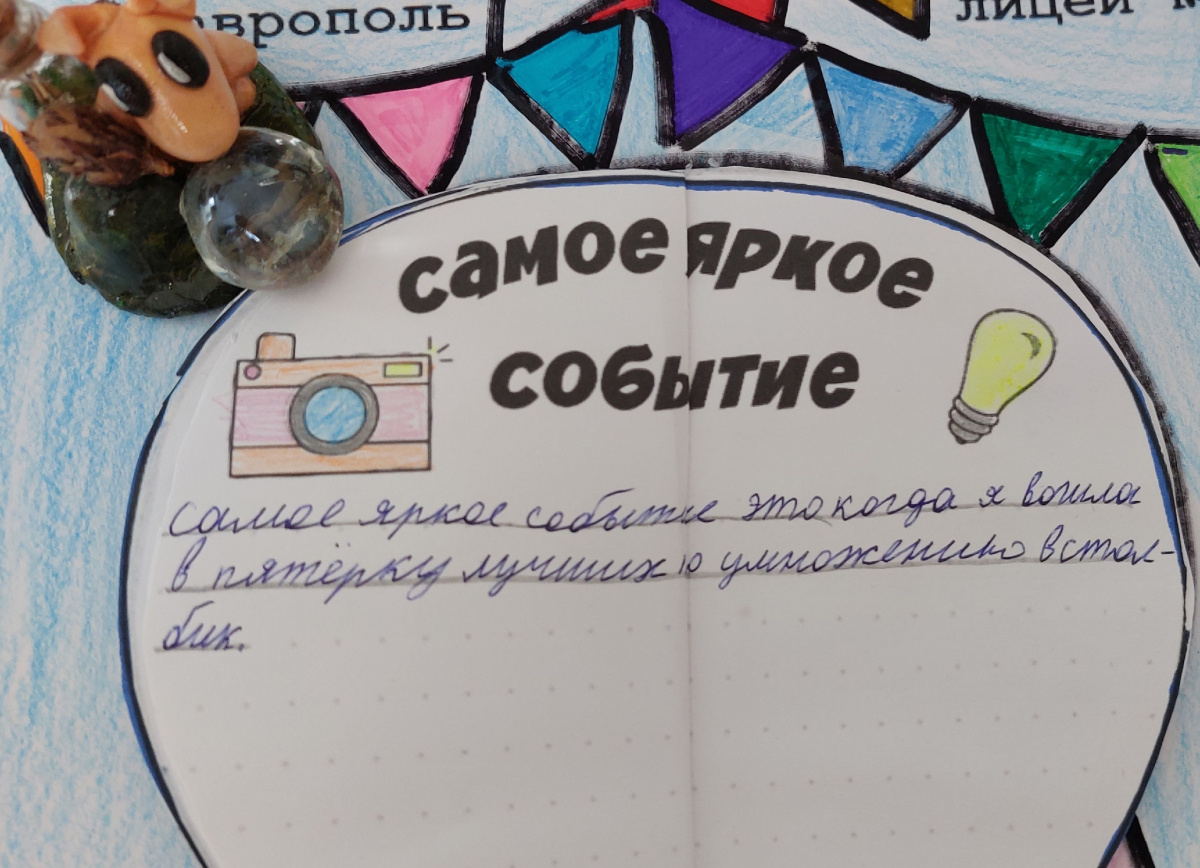 аврополь
лицей
самое яркое
событие
самое яркое событие это когда я вошла
в пятёрку лучших ю умножению встол-
бик.